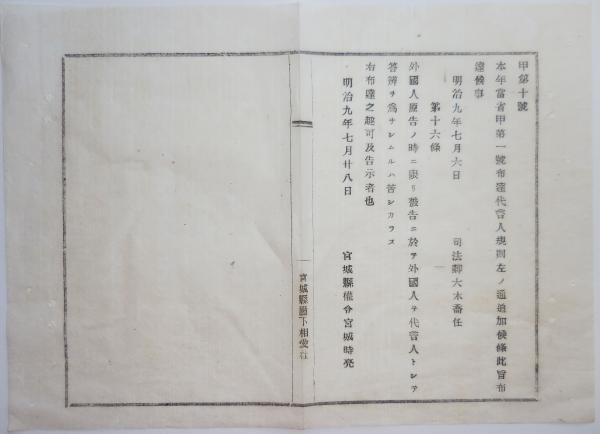 甲第十號
本年當省甲第一號布達代言人規則左ノ通追加候條此旨布
達候事
明治九年七月六日　司法卿大木喬任
第十六條
外國人原告ノ時ニ限リ被告ニ於テ外國人ヲ代言人トシテ
答辨ヲ為サシムルハ苦シカラス
右布達之趣可及告示者也
明治九年七月廿八日　宮城縣權令宮城時亮
宮城縣